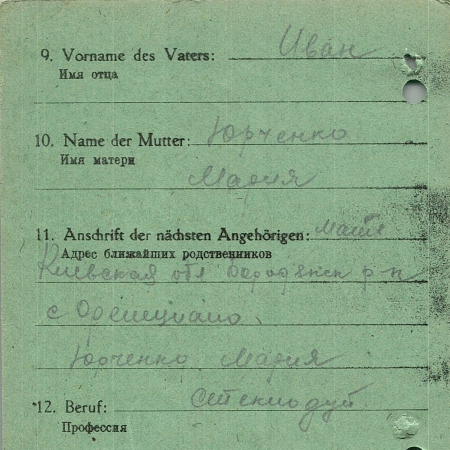 9. Vorname des Vaters: Иван
Имя отца
10. Name der Mutter: Юрченко
Имя матери
Мария
11. Anschrift der nächsten Angehörigen:
Адрес ближайших родственников
Киевская обл Бородянск р-н
с
Юрченко Мария
12. Beruf: Стеклодув
Профессия